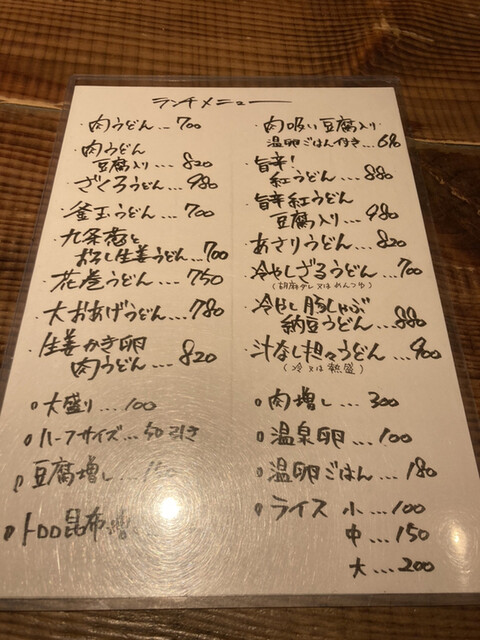 ランチメニュー
・肉うどん…700
・肉うどん
豆腐入り…820
・ざくろうどん…980
・釜玉うどん…700
・九条葱と
おろし生姜うどん…700
・花巻うどん…750
・大おあげうどん…780
・生姜かき卵
肉うどん…820
○大盛り…100
○ハーフサイズ…50引き
○豆腐増し…
○トロロ昆布増
・肉吸い豆腐入り
温卵ごはん付き…
・旨辛!
紅うどん…880
・旨辛紅うどん
豆腐入り…980
・あさりうどん…820
・冷やしざるうどん…700
(胡麻ダレ又はめんつゆ)
・冷やし豚しゃぶ
納豆うどん…880
・汁なし担々うどん…900
(冷又は熱盛)
○肉増し…300
○温泉卵…100
○温卵ごはん…180
○ライス 小…100
中…150
大…200